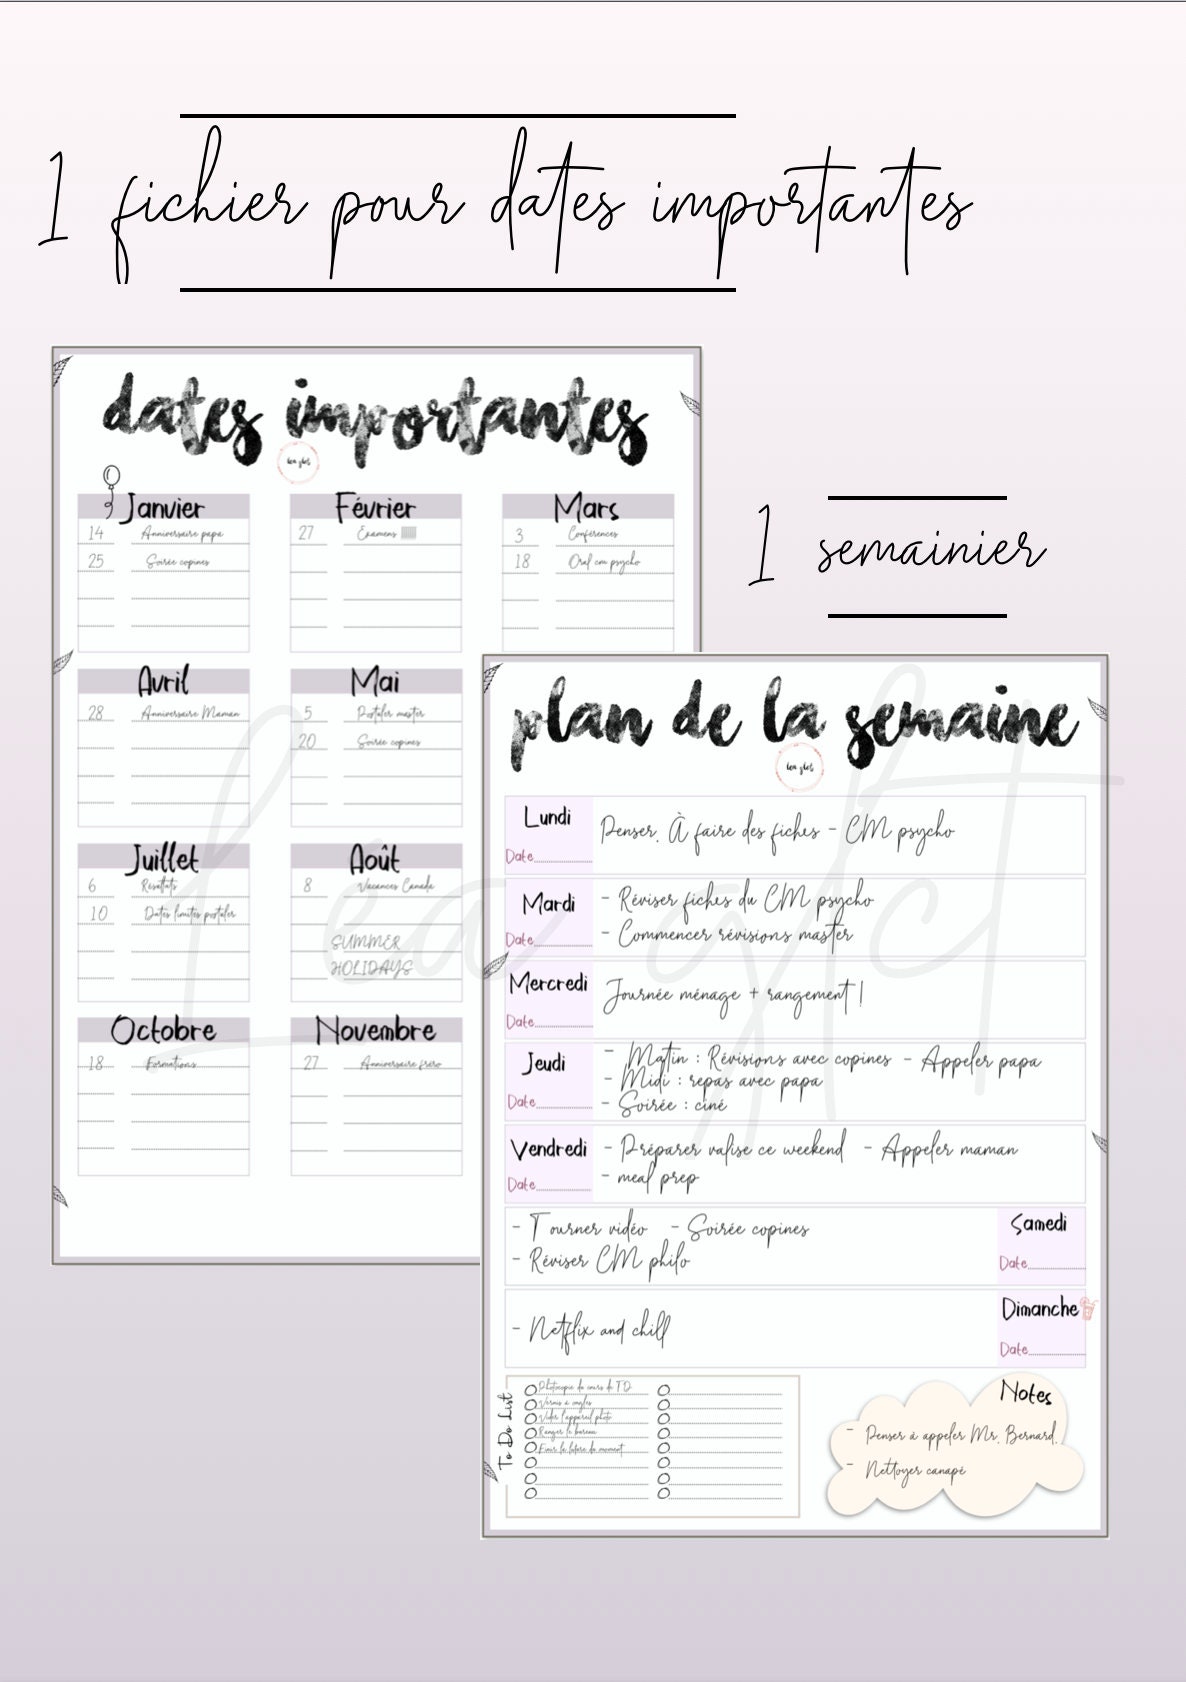 1 fichier pour dates importantes
dates importantes
lea ght
Janvier
14 Anniversaire papa
25 Soirée copines
Février
27 Examens
Mars
3 Conférences
18 Oral cm psycho
1 semainier
Avril
28 Anniversaire Maman
Mai
5 Postuler master
20 Soirée copines
Juillet
6 Résultats
10 Dates limites postuler
Août
8 Vacances Canada
SUMMER
HOLIDAYS
Octobre
18 Formations
Novembre
27 Anniversaire fréro
plan de la semaine
lea ght
Lundi
Date
Penser. À faire des fiches - CM psycho
Mardi
Date
- Réviser fiches du CM psycho
- Commencer révisions master
Mercredi
Date
Journée ménage + rangement !
Jeudi
Date
- Matin : Révisions avec copines - Appeler papa
- Midi : repas avec papa
- Soirée : ciné
Vendredi
Date
- Préparer valise ce weekend - Appeler maman
- meal prep
- Tourner vidéo - Soirée copines
- Réviser CM philo
Samedi
Date
- Netflix and chill
Dimanche
Date
To Do List
Photocopie du cours de TD
Vernis à ongles
Vider l'appareil photo
Ranger le bureau
Finir le livre du moment
Notes
- Penser à appeler Mr. Bernard.
- Nettoyer canapé
Lea ght